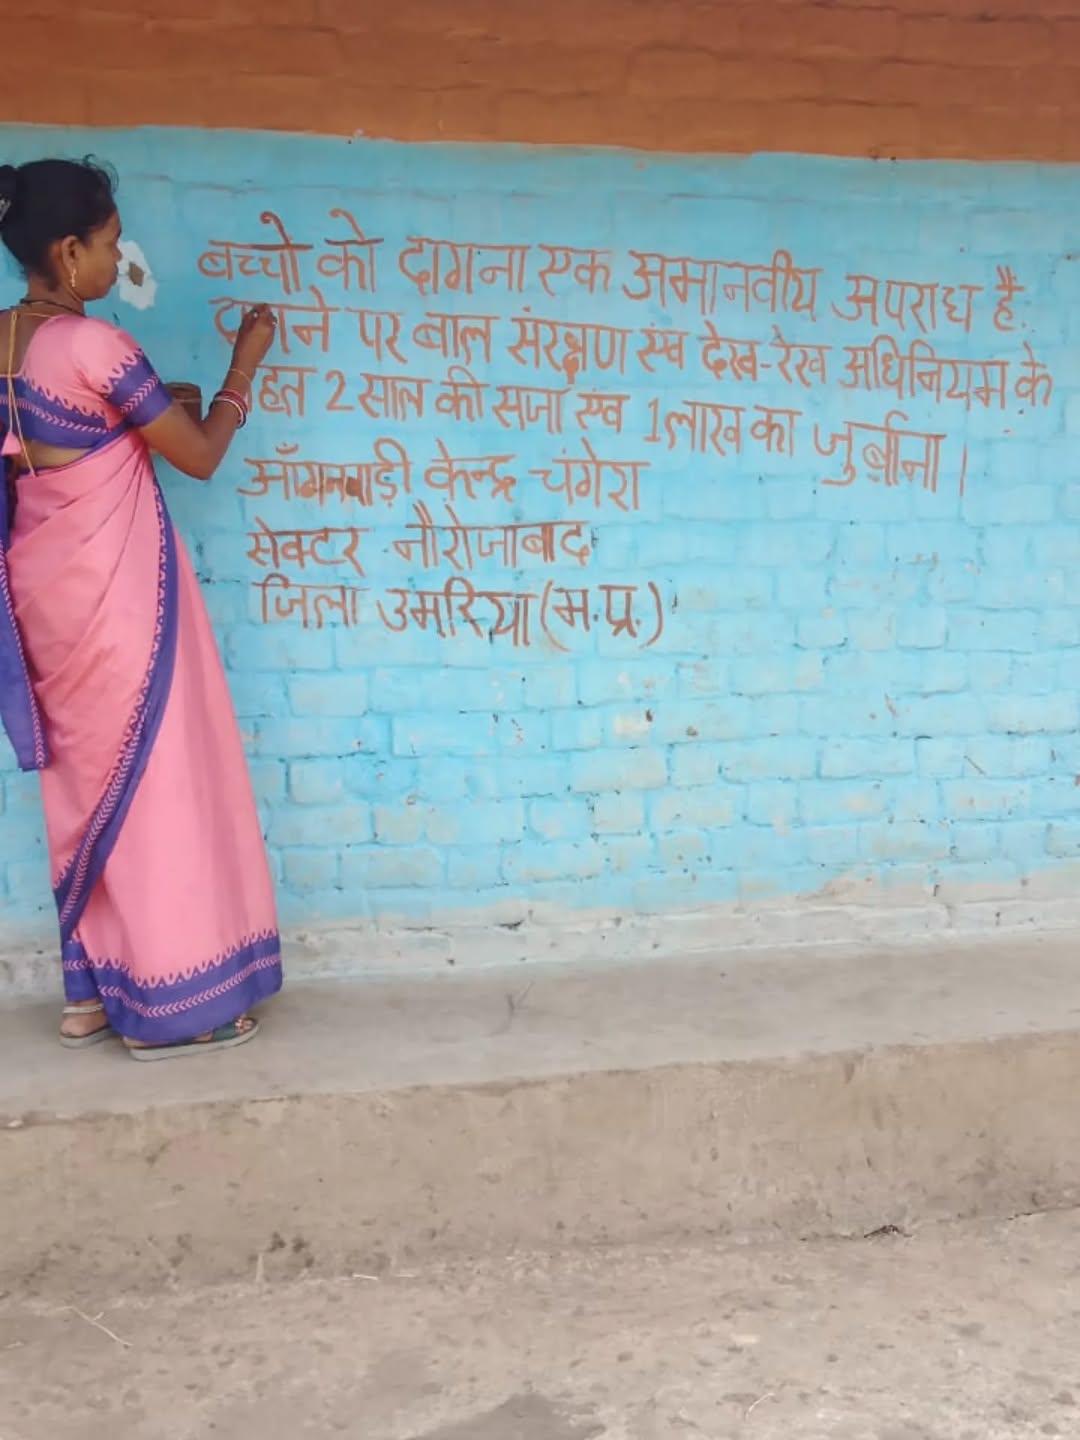 बच्चो को दागना एक अमानवीय अपराध है.
दागने पर बाल संरक्षण एंव देख-रेख अधिनियम के
तहत 2 साल की सजा एंव 1 लाख का जुर्बाना।
आँगनवाड़ी केन्द्र चंगेरा
सेक्टर नौरोजाबाद
जिला उमरिया (म.प्र.)